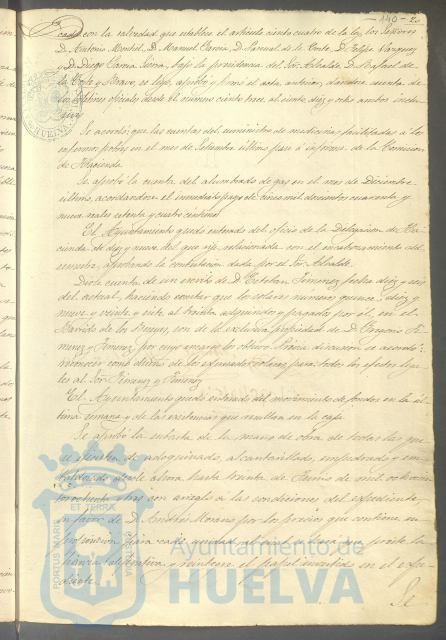 140-2o
cado con la salvedad que establece el artículo ciento cuatro de la ley, los Señores
D. Antonio Montiel, D. Manuel García, D. Pascual de la Corte, D. Felipe Vazquez
y D. Diego Garcia, bajo la presidencia del Sor. Alcalde D. Rafael de
la Corte y Bravo, se leyó, aprobó y firmó el acta anterior, dandose cuenta de
los oficiales desde el número ciento trece al ciento diez y ocho ambos inclu
Se acordó: que las cuentas del suministro de medicinas facilitadas a los
enfermos pobres en el mes de Setiembre último pase á informe de la Comision
de Hacienda.
Se aprobó la cuenta del alumbrado de gas en el mes de Diciembre
último, acordandose el inmediato pago de cinco mil doscientos cuarenta y
nueve reales setenta y cuatro centimos
El Ayuntamiento quedó enterado del oficio de la Delegacion de Ha
cienda de diez y nueve del que rije, relacionada con el
semestre, aprobando la contestacion dada por el Sor. Alcalde.
Diose cuenta de un escrito de D. Esteban Jimenez fecha diez y seis
del actual, haciendo constar que los solares numeros quince, diez y
nueve y veinte y siete al treinta adquiridos y pagados por él, en el
Barrido de los son de la exclusiva propiedad de D. Gregorio Ji
menez y Jimenez, por cuyo encargo los obtuvo. Prévia discusion se acordó:
reconocer como dueño de los espresados solares para todos los efectos lega
les al Sor. Jimenez y Jimenez
El Ayuntamiento quedó enterado del movimiento de fondos en la úl
tima semana y de las existencias que resultan en la caja.
Se aprobó la subasta de la mano de obra de todas las que
se ejecuten de adoquinado, alcantarillado, empedrado y em
baldosado desde ahora hasta treinta de Junio de mil ochocien
tos ochenta y con arreglo a las condiciones del expediente,
en favor de D. Andrés Moreno por los precios que contiene su
proposicion para cada unidad, que preste la
fianza definitiva y reintegre el papel invertido en el espe
diente.
Se
PORTUS MARIS
ET TERRÆ
CUSTODIA
Ayuntamiento de
HUELVA